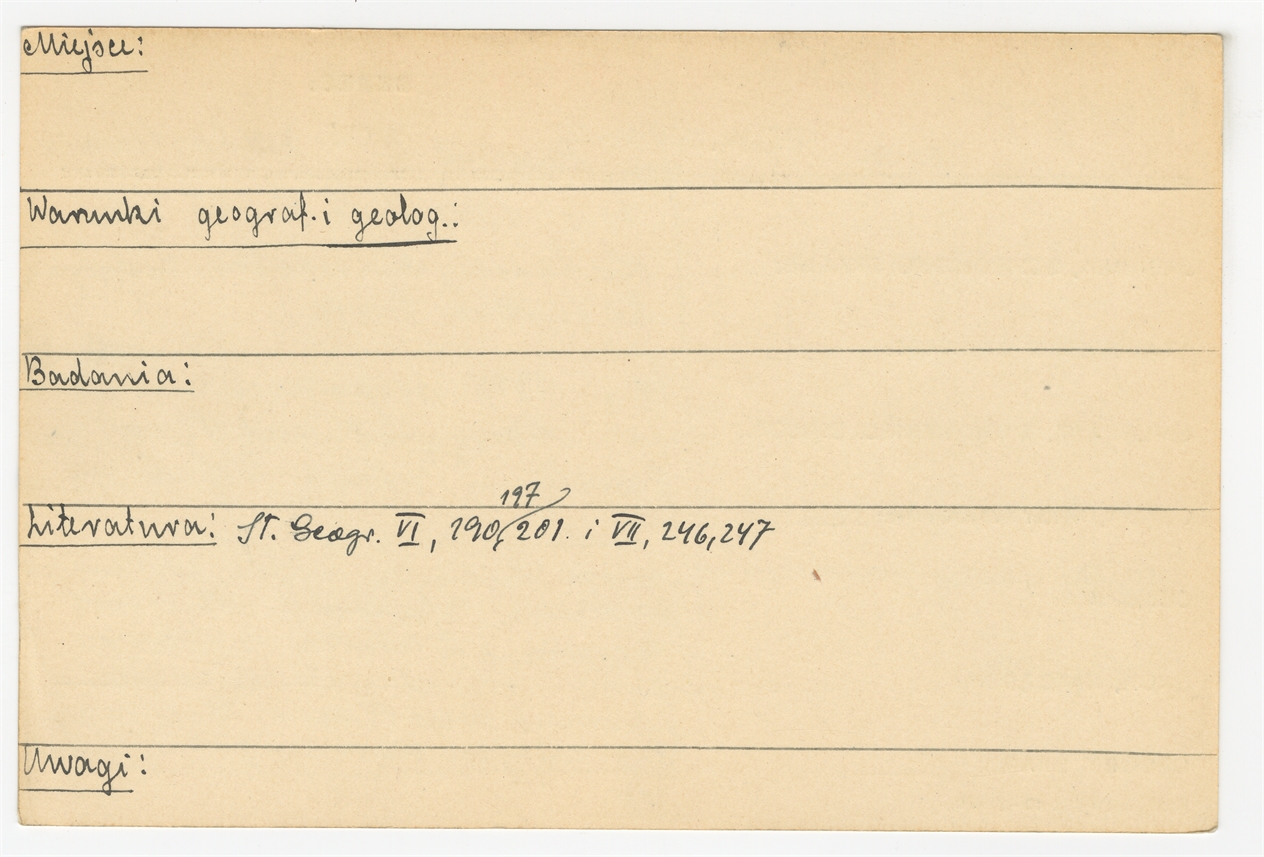 Miejsce:
Warunki geograf. i geolog.:
Badania:
197
Literatura: Sł. Geogr. VI, 190, 201. i VII, 246, 247
Uwagi: